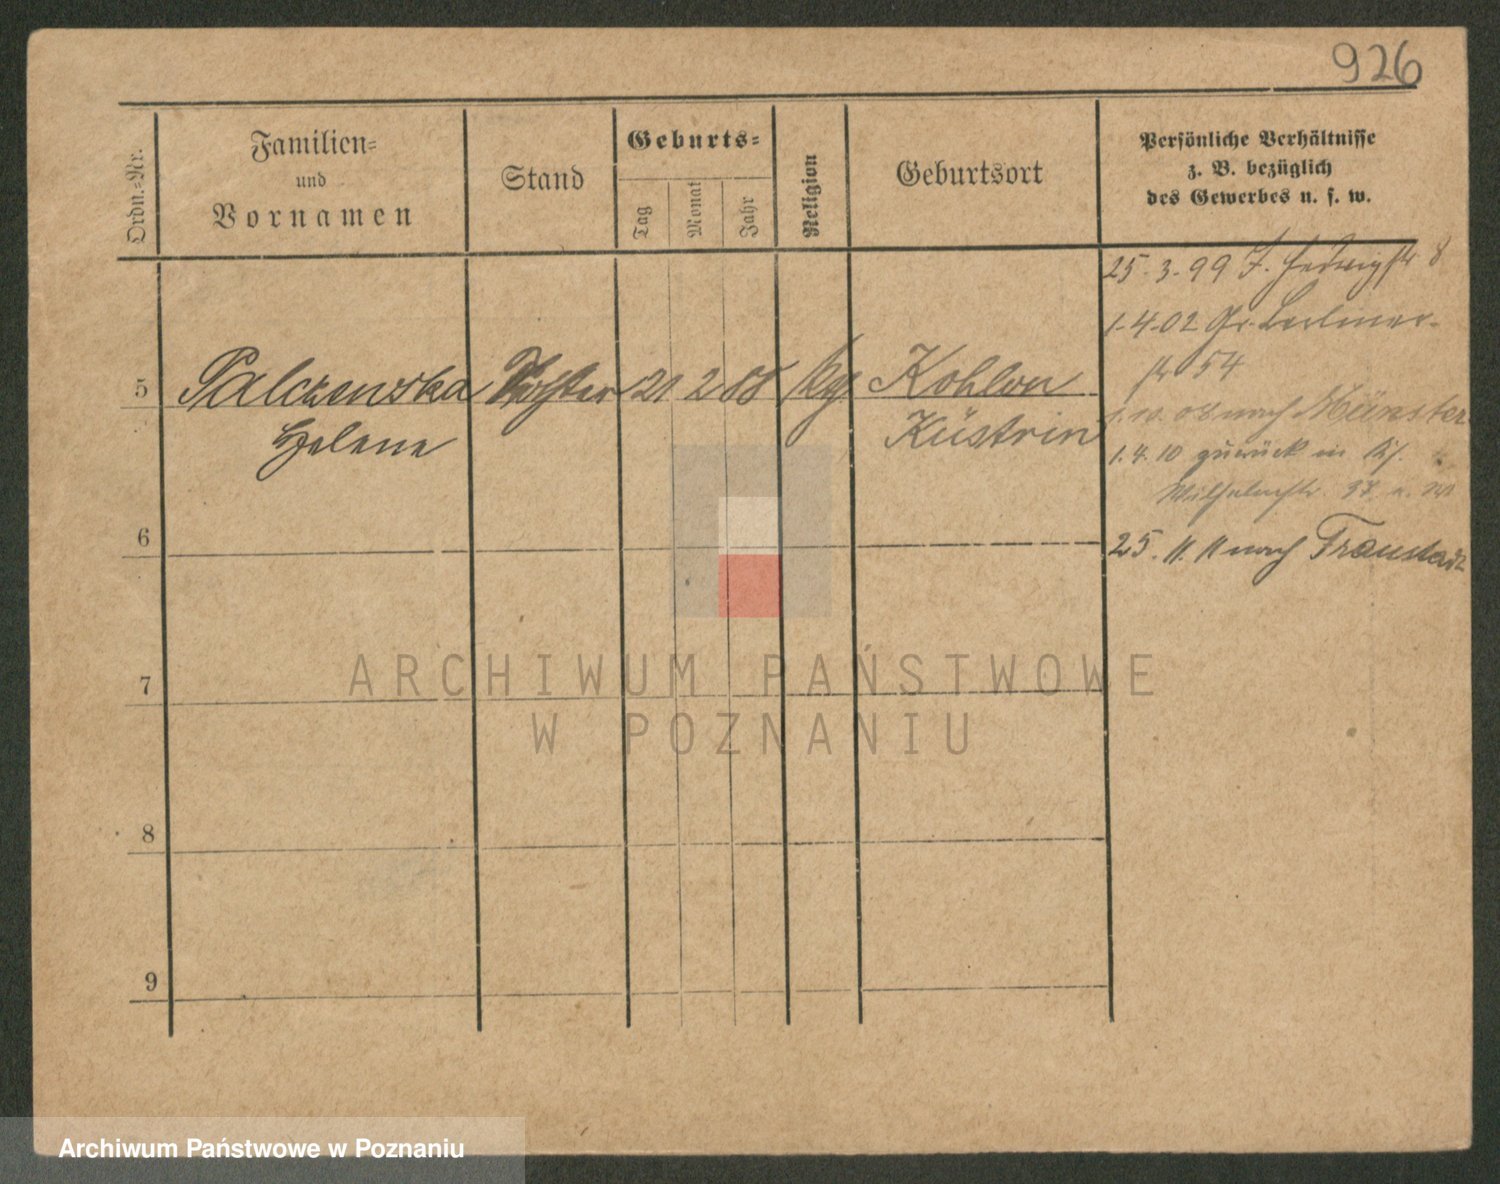 926
Ordn.-Nr.
Familien-
und
Vornamen
Stand
Geburts-
Tag
Monat
Jahr
Religion
Geburtsort
Persönliche Verhältnisse
z. B. bezüglich
des Gewerbes u. s. w.
25.3.99 J. Hedwigstr 8
1.4.02 Gr. Berliner-
str 54
5 Palczewska Tochter 21 2 88 Kohlow
Helene Küstrin
1.10.08 nach Münster
1.4.10 zurück in
Wilhelmstr.
6
25.11.11 nach Fraustadt
7
8
9
ARCHIWUM PAŃSTWOWE
W POZNANIU
Archiwum Państwowe w Poznaniu